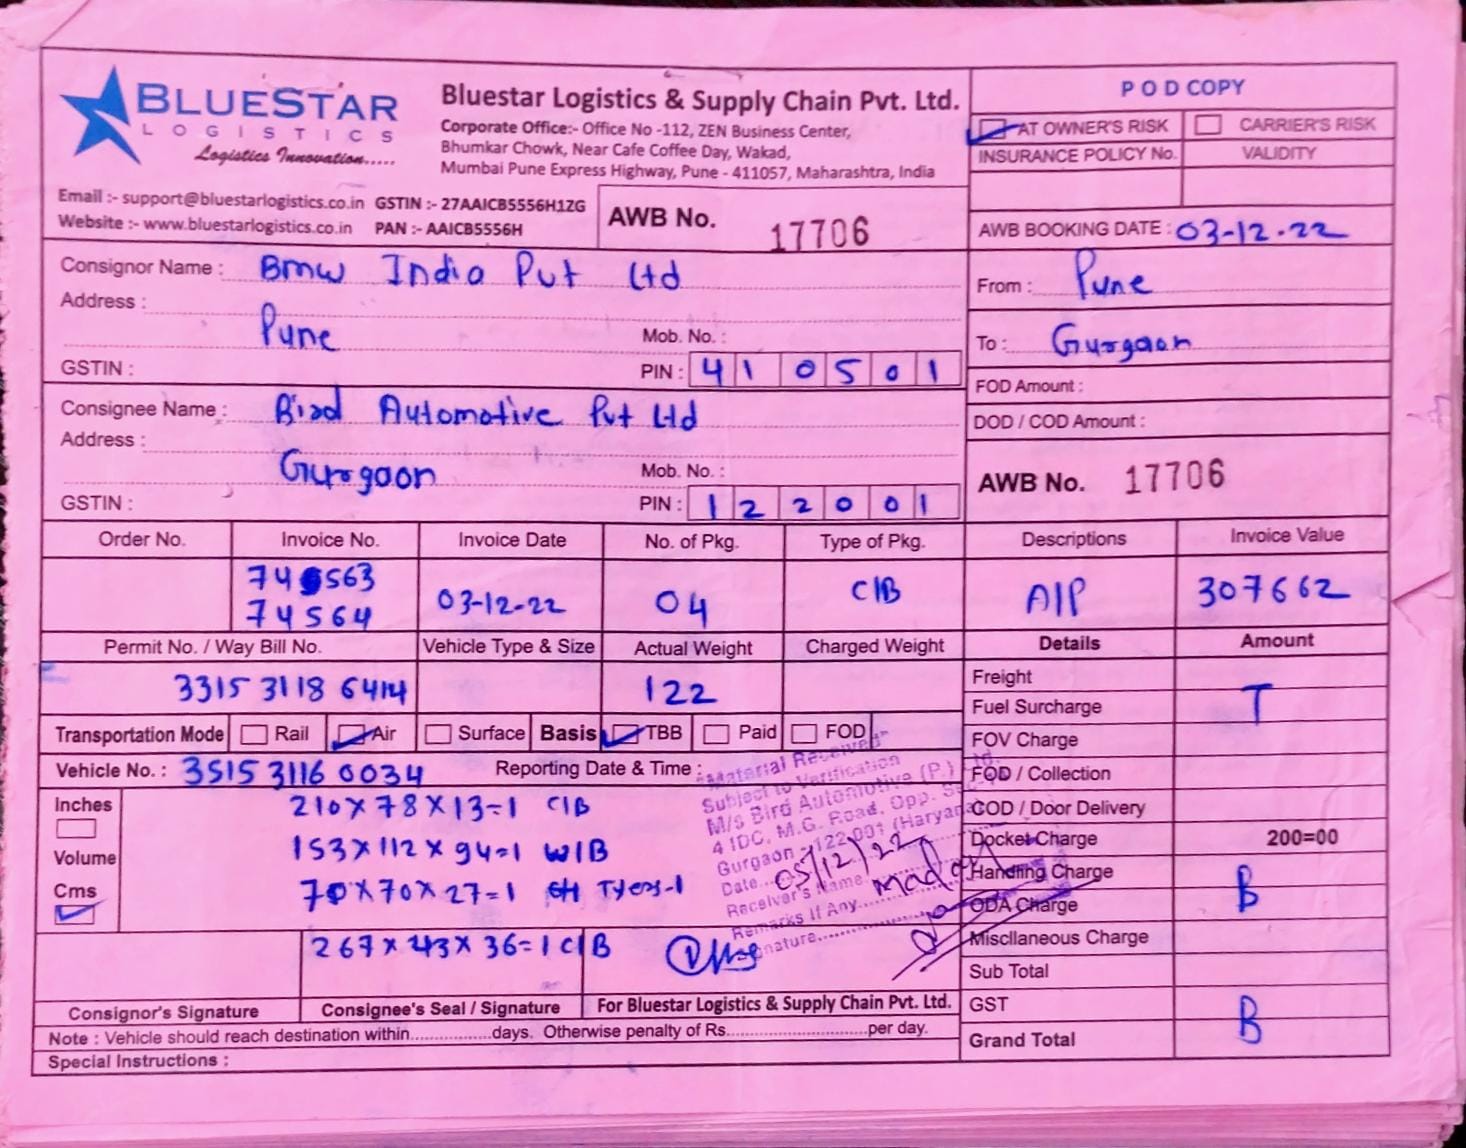 BLUESTAR
LOGISTICS
Logistics Innovation.....
Bluestar Logistics & Supply Chain Pvt. Ltd.
Corporate Office:- Office No -112, ZEN Business Center,
Bhumkar Chowk, Near Cafe Coffee Day, Wakad,
Mumbai Pune Express Highway, Pune - 411057, Maharashtra, India
Email :- support@bluestarlogistics.co.in GSTIN :- 27AAICB5556H1ZG
Website :- www.bluestarlogistics.co.in PAN :- AAICB5556H
AWB No. 17706
P O D COPY
AT OWNER'S RISK CARRIER'S RISK
INSURANCE POLICY No. VALIDITY
AWB BOOKING DATE : 03-12-22
Consignor Name : Bmw India Pvt Ltd
Address :
Pune Mob. No. :
GSTIN : PIN : 410501
From : Pune
To : Gurgaon
FOD Amount :
DOD / COD Amount :
Consignee Name : Bird Automotive Pvt Ltd
Address :
Gurgaon Mob. No. :
GSTIN : PIN : 122001
AWB No. 17706
Order No. Invoice No. Invoice Date No. of Pkg. Type of Pkg. Descriptions Invoice Value
74563
74564 03-12-22 04 C/B A/P 307662
Permit No. / Way Bill No. Vehicle Type & Size Actual Weight Charged Weight Details Amount
3315 3118 6414 122
Transportation Mode Rail Air Surface Basis TBB Paid FOD
Vehicle No. : 3515 3116 0034 Reporting Date & Time :
Inches
Volume
Cms
210 X 78 X 13=1 C/B
153 X 112 X 94=1 W/B
70 X 70 X 27=1
267 X 43 X 36=1 C/B
Material Received
Subject to Verification
M/s Bird Automotive (P.) Ltd.
4 IDC, M.G. Road, Opp.
Gurgaon - 122 001 (Haryana)
Date... 05/12/22
Receiver's Name
Remarks If Any
Signature
Freight
Fuel Surcharge T
FOV Charge
FOD / Collection
COD / Door Delivery
Docket Charge 200=00
Handling Charge
ODA Charge B
Miscllaneous Charge
Sub Total
GST
Grand Total B
Consignor's Signature Consignee's Seal / Signature For Bluestar Logistics & Supply Chain Pvt. Ltd.
Note : Vehicle should reach destination within................days. Otherwise penalty of Rs............................per day.
Special Instructions :